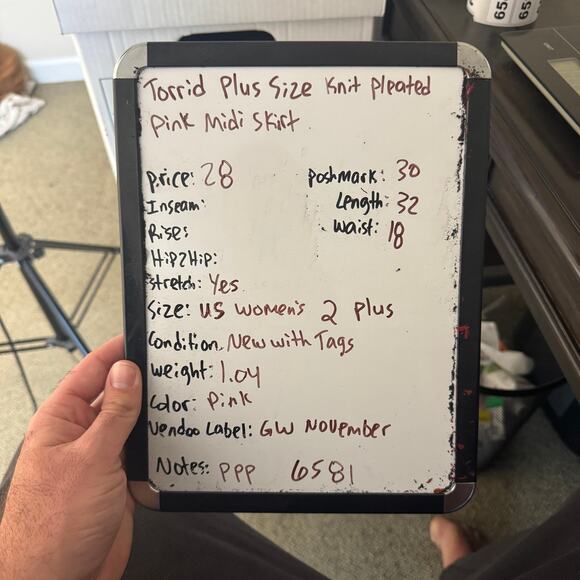 Torrid Plus Size Knit Pleated
Pink Midi Skirt.
Price: 28
Poshmark: 30
Inseam:
Length: 32
Rise:
Waist: 18
Hip2Hip:
Stretch: Yes
Size: US Women's 2 Plus
Condition: New with Tags
Weight: 1.04
Color: Pink
Vendoo Label: GW November
Notes: PPP 6581